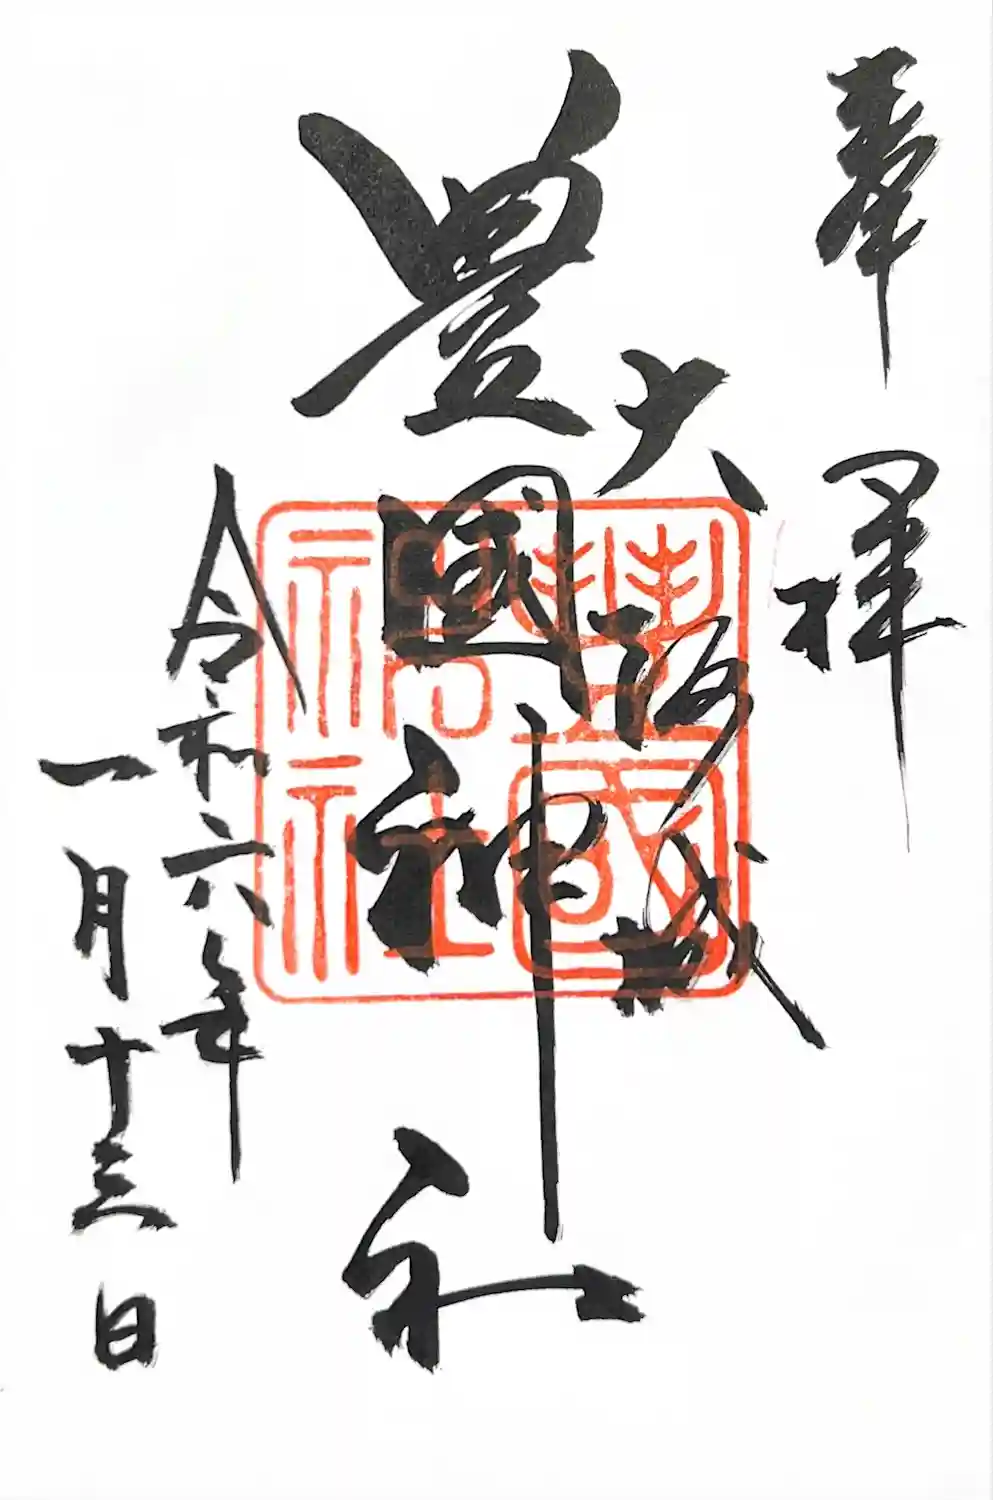 奉拝
大阪城
豊國神社
令和六年
一月十三日
豊國神社